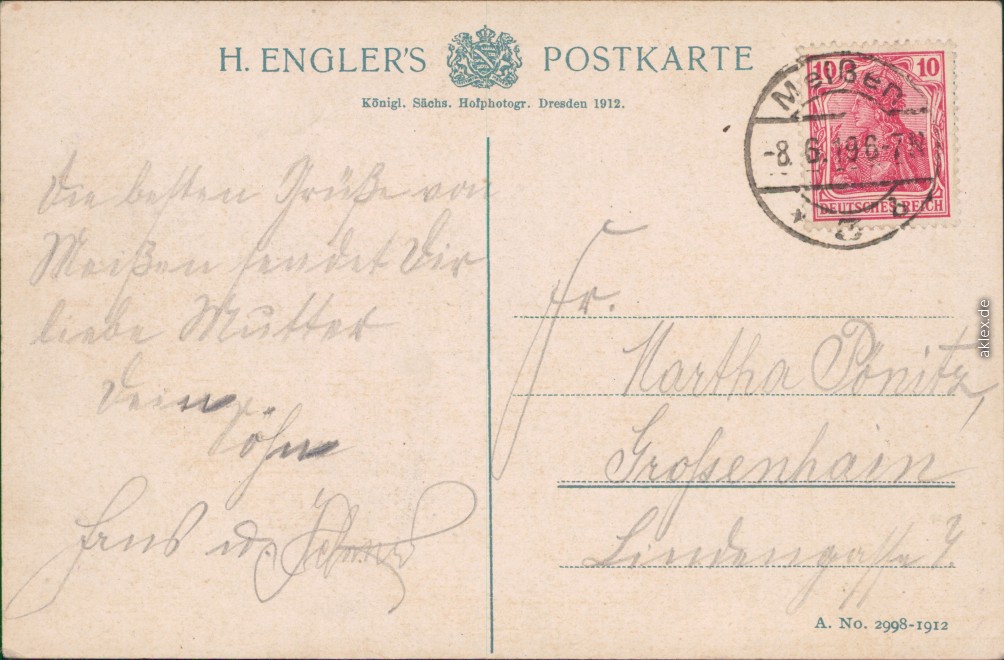 H. ENGLER'S POSTKARTE
Königl. Sächs. Hofphotogr. Dresden 1912.
10 10
DEUTSCHES REICH
Meißen
-8.6.19.6-7N
* 2 b
Die besten Grüße von
Meißen sendet Dir
liebe Mutter
Dein
Söhn
Hans u.
Fr.
Martha Pönitz,
Großenhain
Liendengasse 7.
A. No. 2998-1912
aklex.de